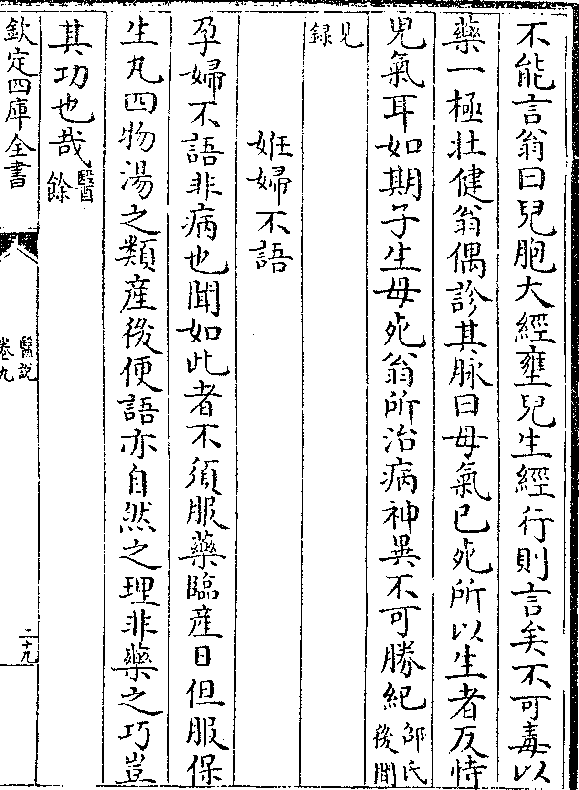 不能言翁曰兒胞大經壅兒生經行則言矣不可毒以
藥一極壯健翁偶診其脉曰母氣已死所以生者反恃
兒氣耳如期子生母死翁所治病神異不可勝紀邵氏後聞
見録
妊婦不語
孕婦不語非病也聞如此者不須服藥臨産日但服保
生丸四物湯之類産後便語亦自然之理非藥之巧豈
其功也哉醫餘
欽定四庫全書
醫説
卷九
二十九